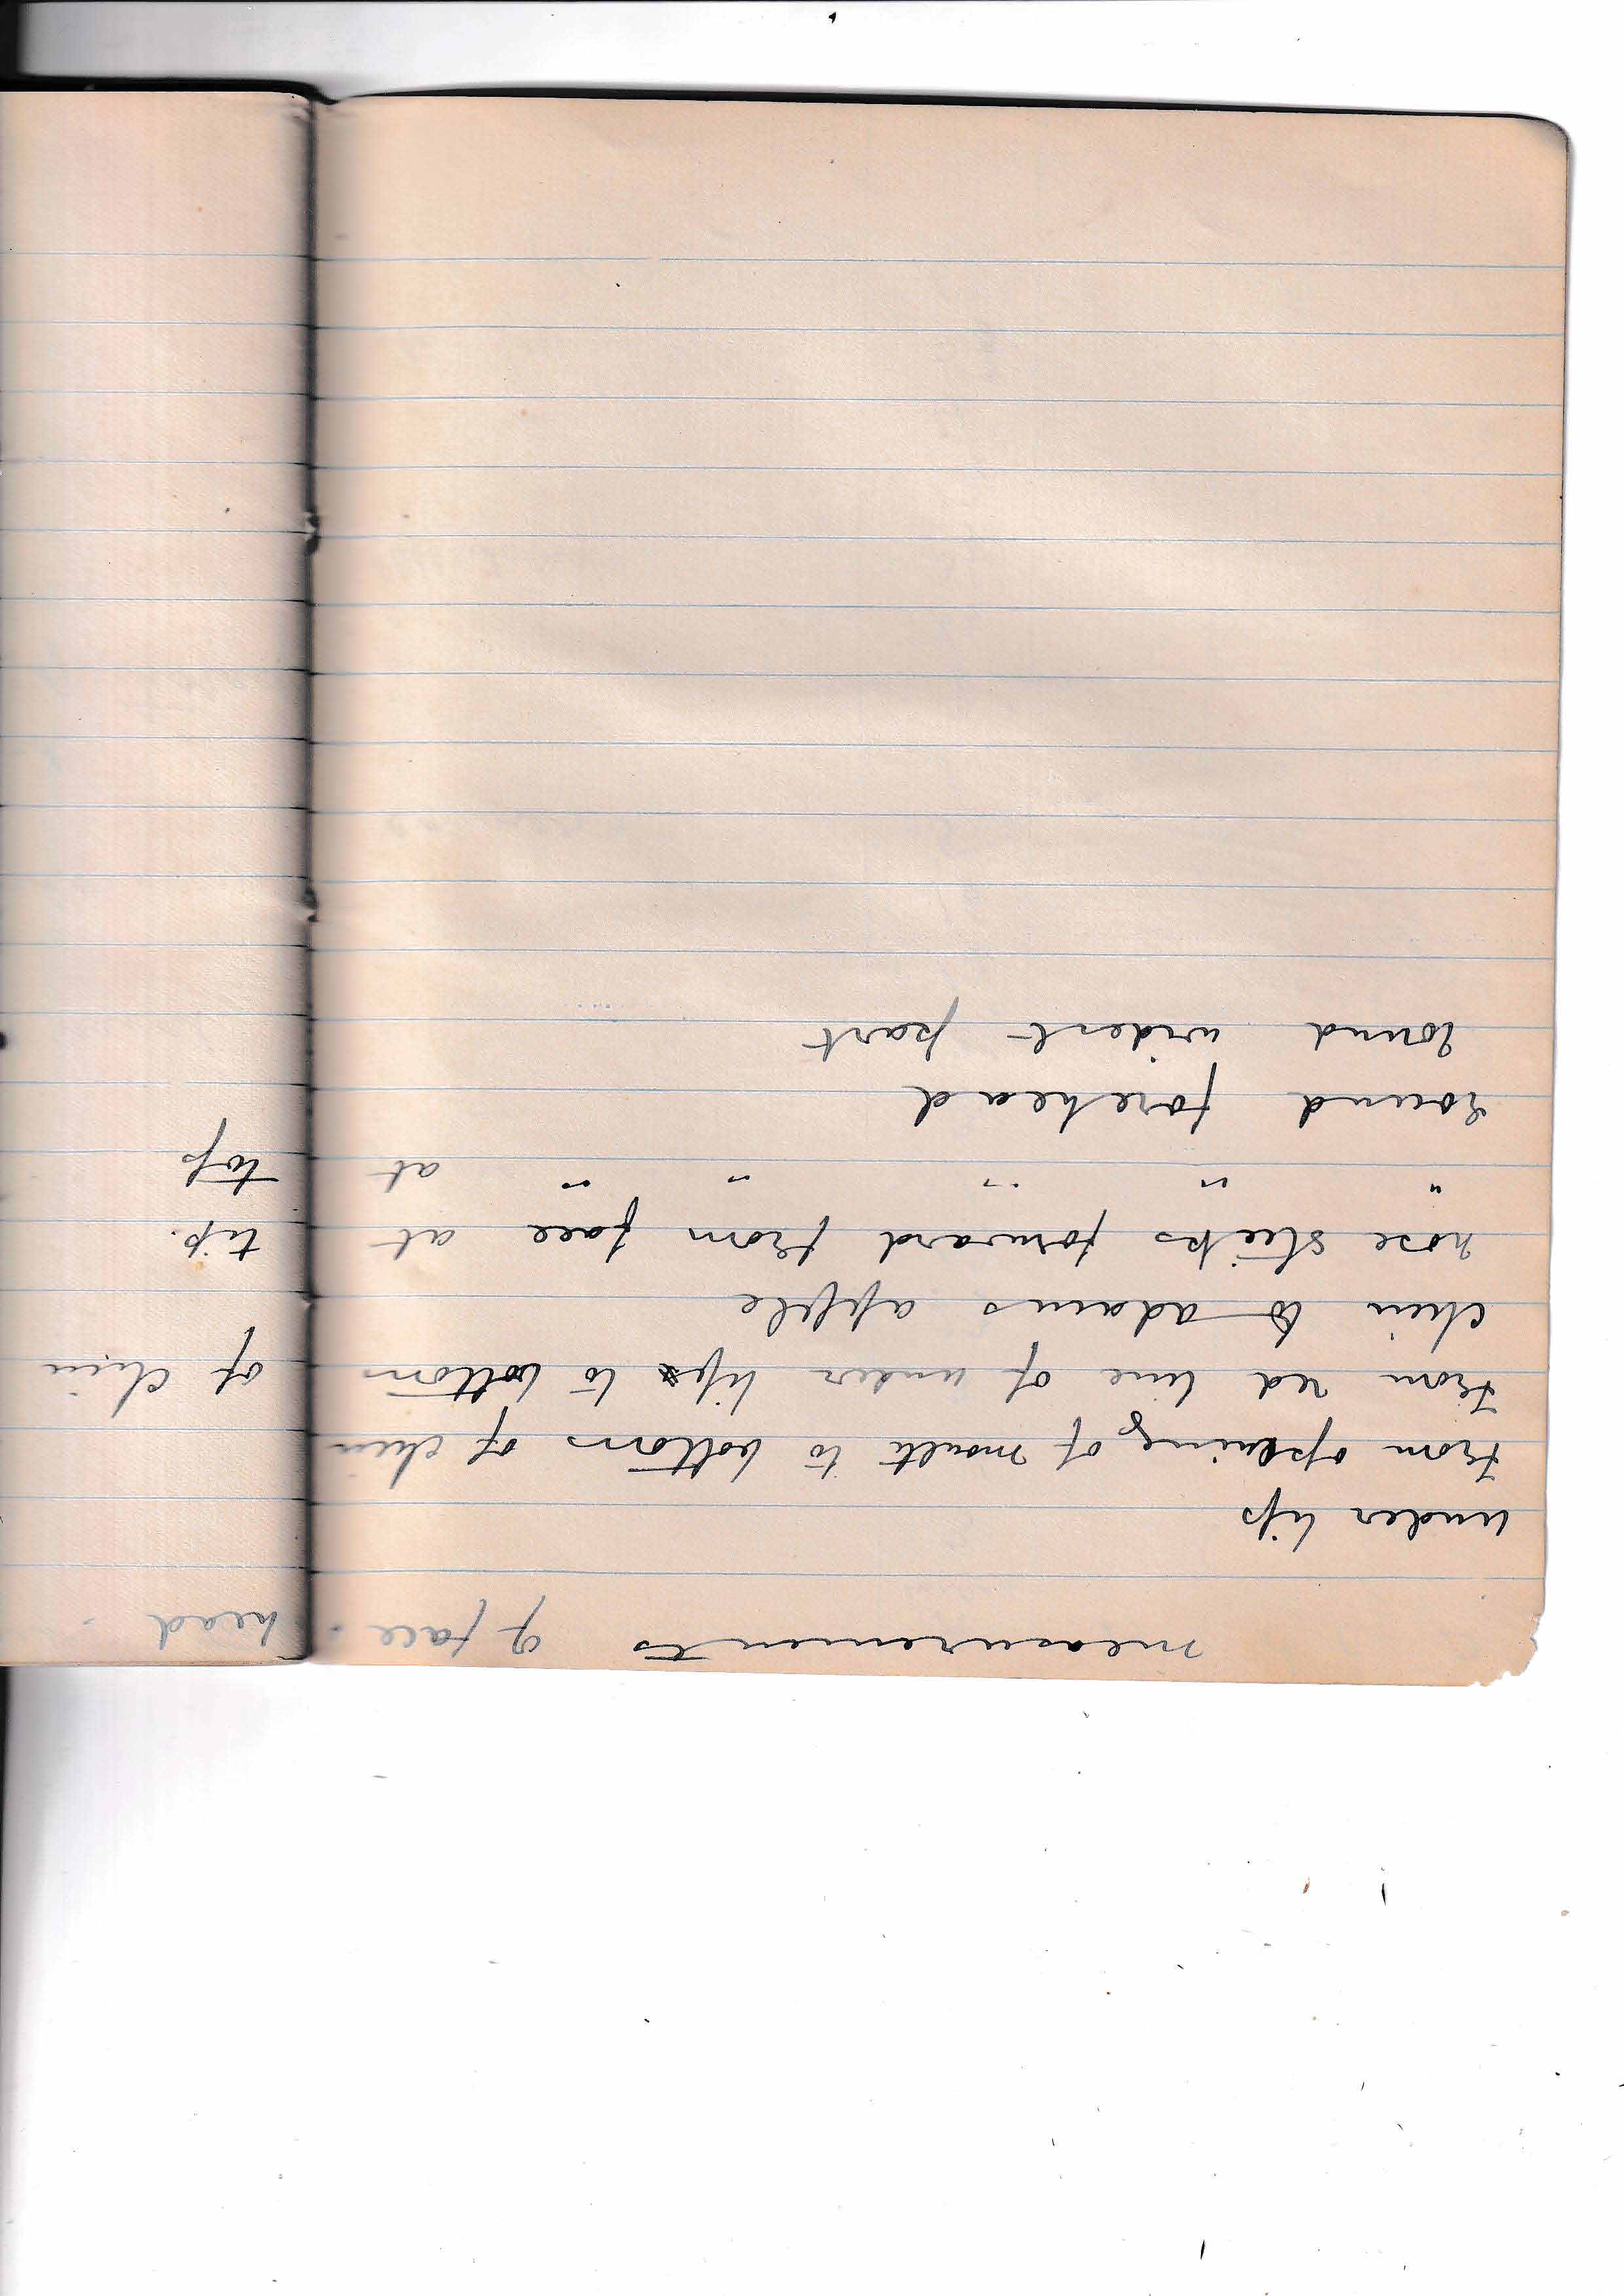 measurements of face . head .
under lips
from opening of mouth to bottom of chin
from red line of under lip to bottom of chin
chin to adams apple
nose sticks forward from face at tip.
" " " " " at top
round forehead
round widest part